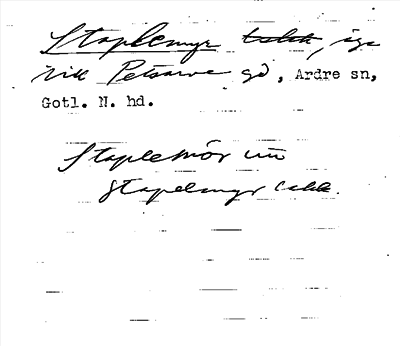 Staplemyr täkt, äga
till Petsarve gd, Ardre sn,
Gotl. N. hd.
Staplemör un
Stapelmyr